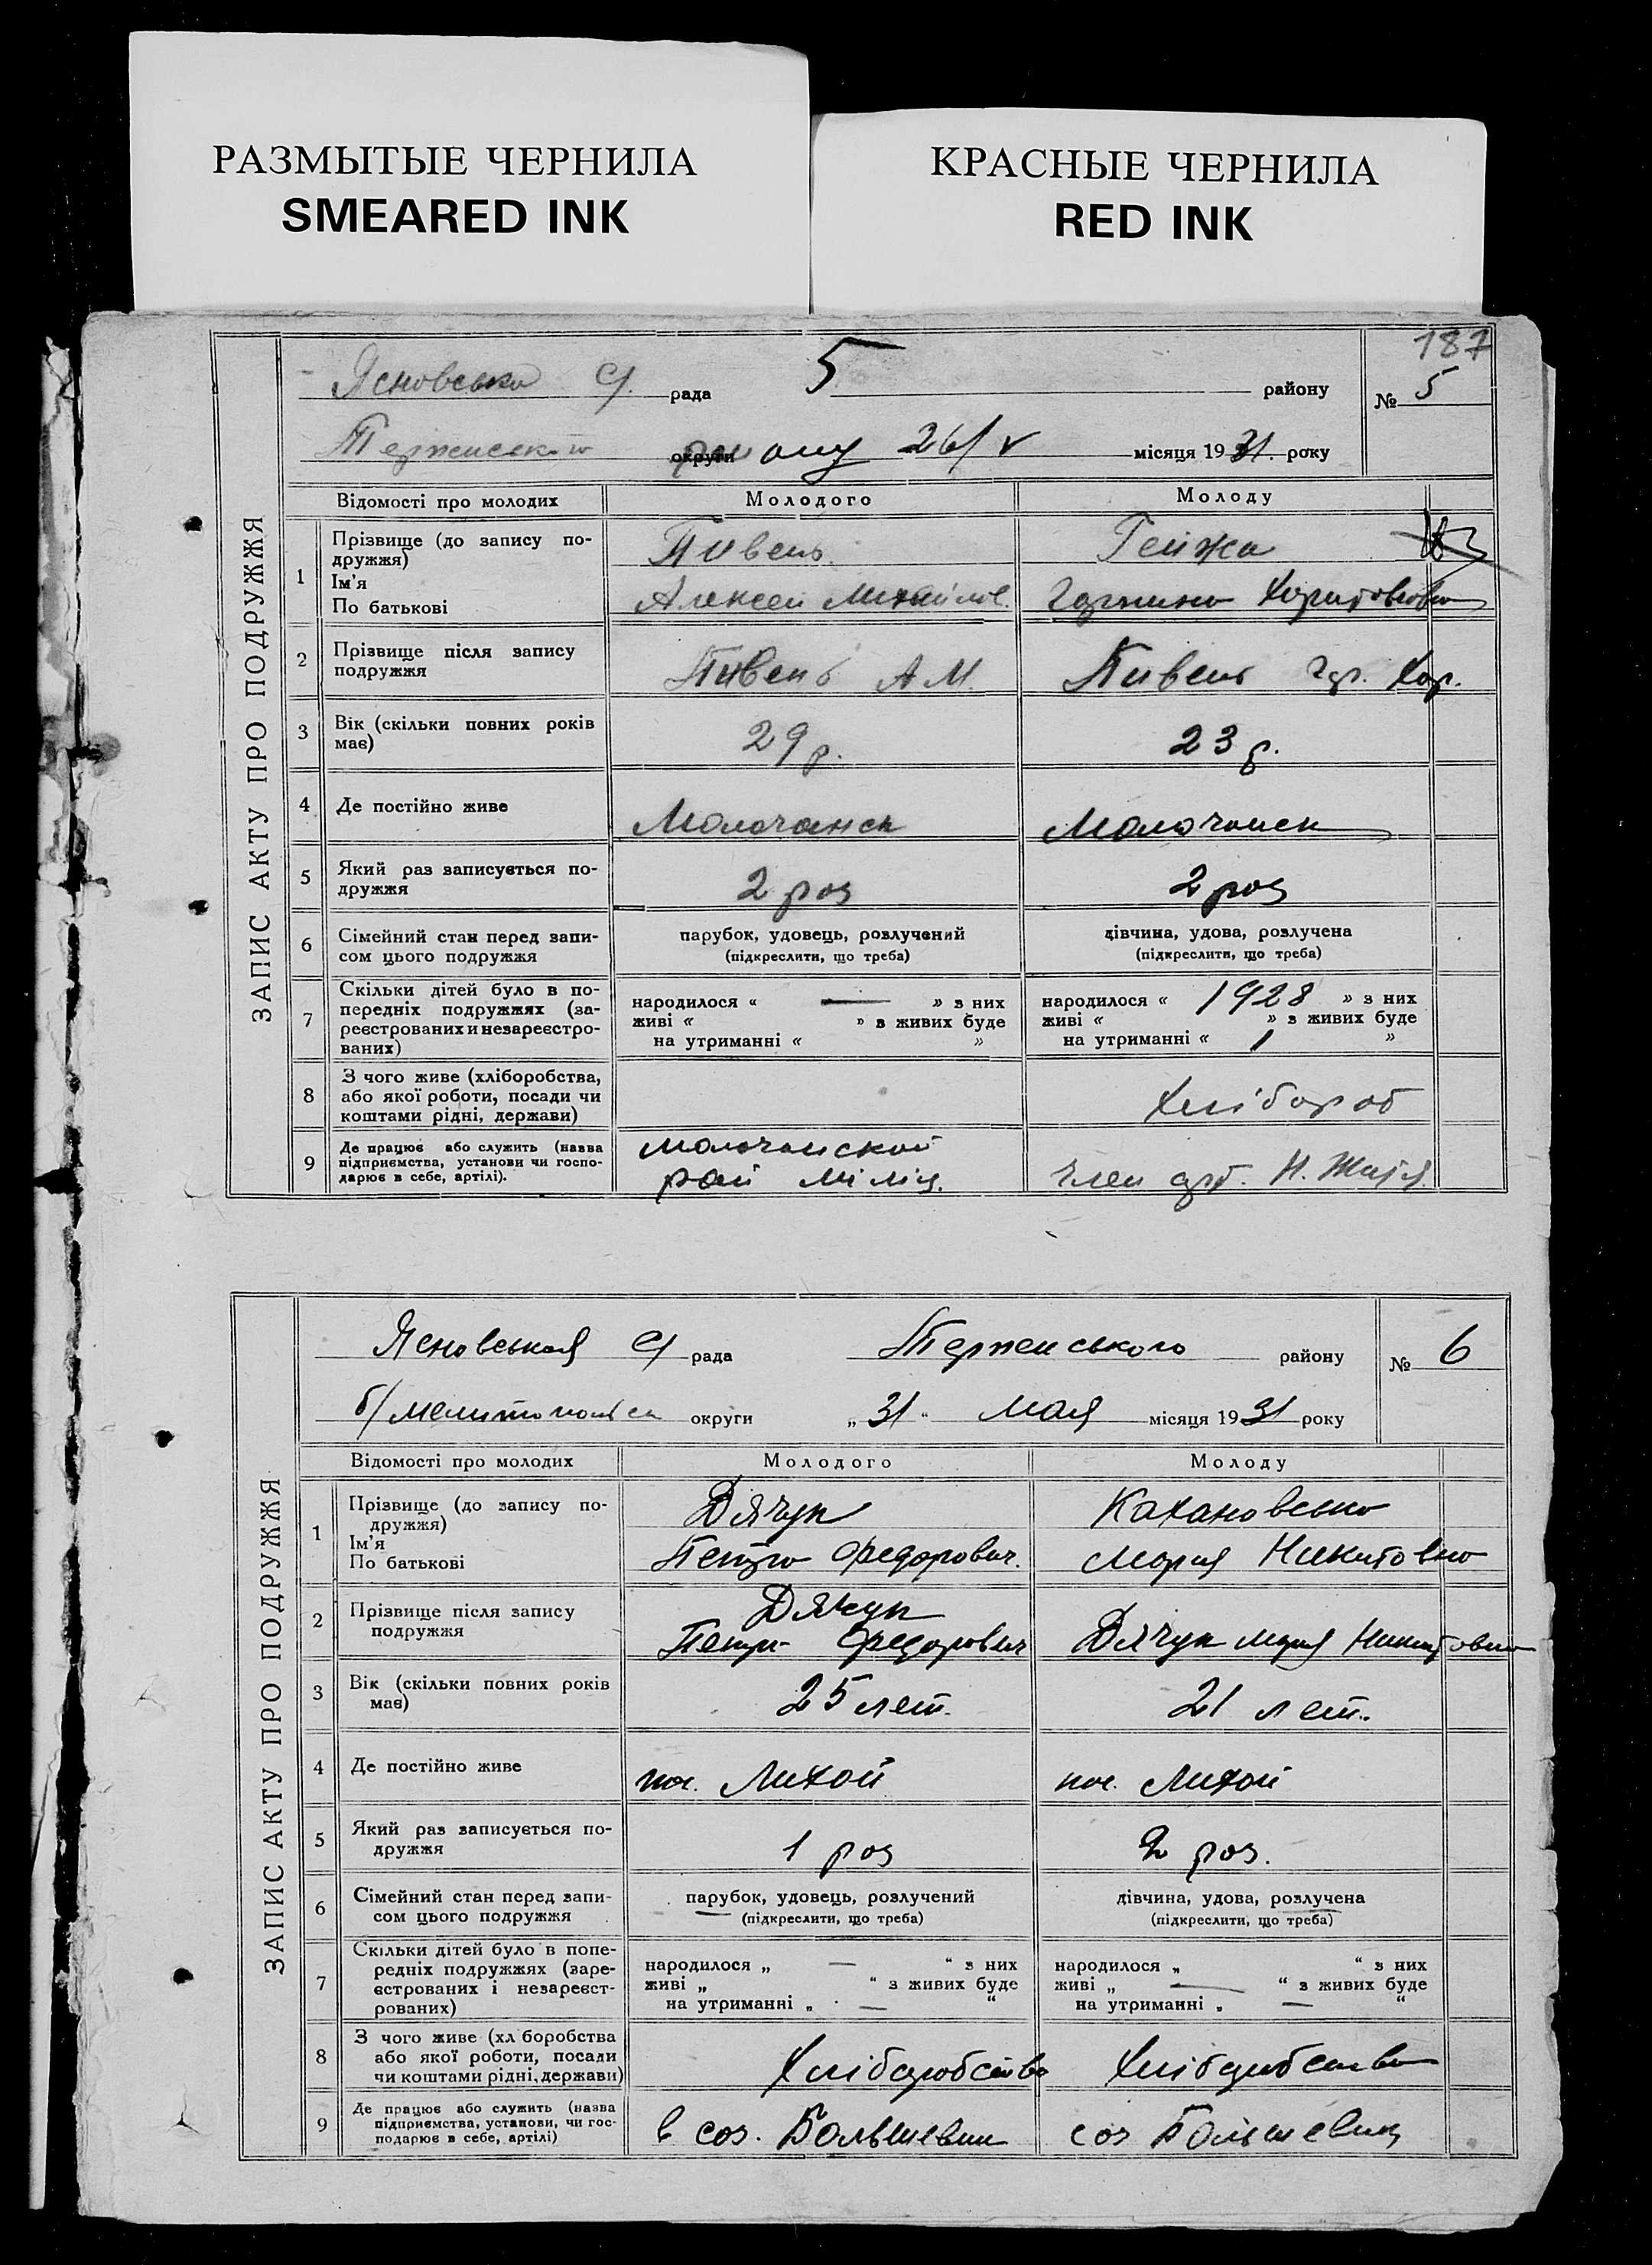 РАЗМЫТЫЕ ЧЕРНИЛА
SMEARED INK
КРАСНЫЕ ЧЕРНИЛА
RED INK
187
ЗАПИС АКТУ ПРО ПОДРУЖЖЯ
Ясновська С/ рада 5 району № 5
округи 26/V місяця 1931 року
Відомості про молодих Молодого Молоду
1 Прізвище (до запису по-
дружжя)
Ім'я
По батькові
Пивень Гейжа
Алексей Михайлов. Харитоновна
2 Прізвище після запису
подружжя
Пивень А М. Пивень Гар. Хар.
3 Вік (скільки повних років
має)
29 р. 23 р.
4 Де постійно живе
Молочанск Молочанск
5 Який раз записується по-
дружжя
2 раз 2 раз
6 Сімейний стан перед запи-
сом цього подружжя
парубок, удовець, розлучений
(підкреслити, що треба)
дівчина, удова, розлучена
(підкреслити, що треба)
7 Скільки дітей було в по-
передніх подружжях (за-
реєстрованих и незареєстро-
ваних)
народилося « — » з них
живі « » з живих буде
на утриманні « »
народилося « 1928 » з них
живі « » з живих буде
на утриманні « 1 »
8 З чого живе (хліборобства,
або якої роботи, посади чи
коштами рідні, держави)
Хлібороб
9 Де працює або служить (назва
підприємства, установи чи госпо-
дарює в себе, артілі).
Молочанской
рай міліц.
член арт. Н. Життя
ЗАПИС АКТУ ПРО ПОДРУЖЖЯ
Ясновська С/ рада району № 6
б/Мелитопольск округи „31" Мая місяця 1931 року
Відомості про молодих Молодого Молоду
1 Прізвище (до запису по-
дружжя)
Ім'я
По батькові
Дячук Кахановська
Петро Федорович. Мария Никитовна
2 Прізвище після запису
подружжя
Дячук
Петро Федорович Дячук Мария Никитовна
3 Вік (скільки повних років
має)
25 лет. 21 лет.
4 Де постійно живе
пос. Лихой пос. Лихой
5 Який раз записується по-
дружжя
1 раз 2 раз.
6 Сімейний стан перед запи-
сом цього подружжя
парубок, удовець, розлучений
(підкреслити, що треба)
дівчина, удова, розлучена
(підкреслити, що треба)
7 Скільки дітей було в попе-
редніх подружжях (заре-
єстрованих і незареєст-
рованих)
народилося „ — " з них
живі „ " з живих буде
на утриманні „ — "
народилося „ " з них
живі „ — " з живих буде
на утриманні „ — "
8 З чого живе (хл боробства
або якої роботи, посади
чи коштами рідні, держави)
Хліборобство Хліборобство
9 Де працює або служить (назва
підприємства, установи, чи гос-
подарює в себе, артілі)
в соз. Большевик соз Большевик